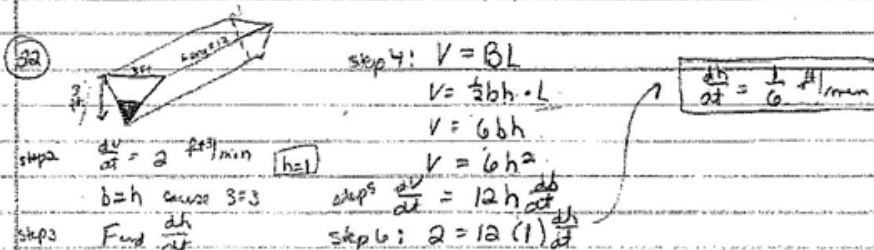 22
3 ft
3 ft
Long=12
step2 dV/dt = 2 ft³/min h=1
b=h cause 3=3
step3 Find dh/dt
step 4: V = BL
V = ½bh · L
V = 6bh
V = 6h²
step5 dV/dt = 12h dh/dt
step 6: 2 = 12 (1) dh/dt
dh/dt = 1/6 ft/min